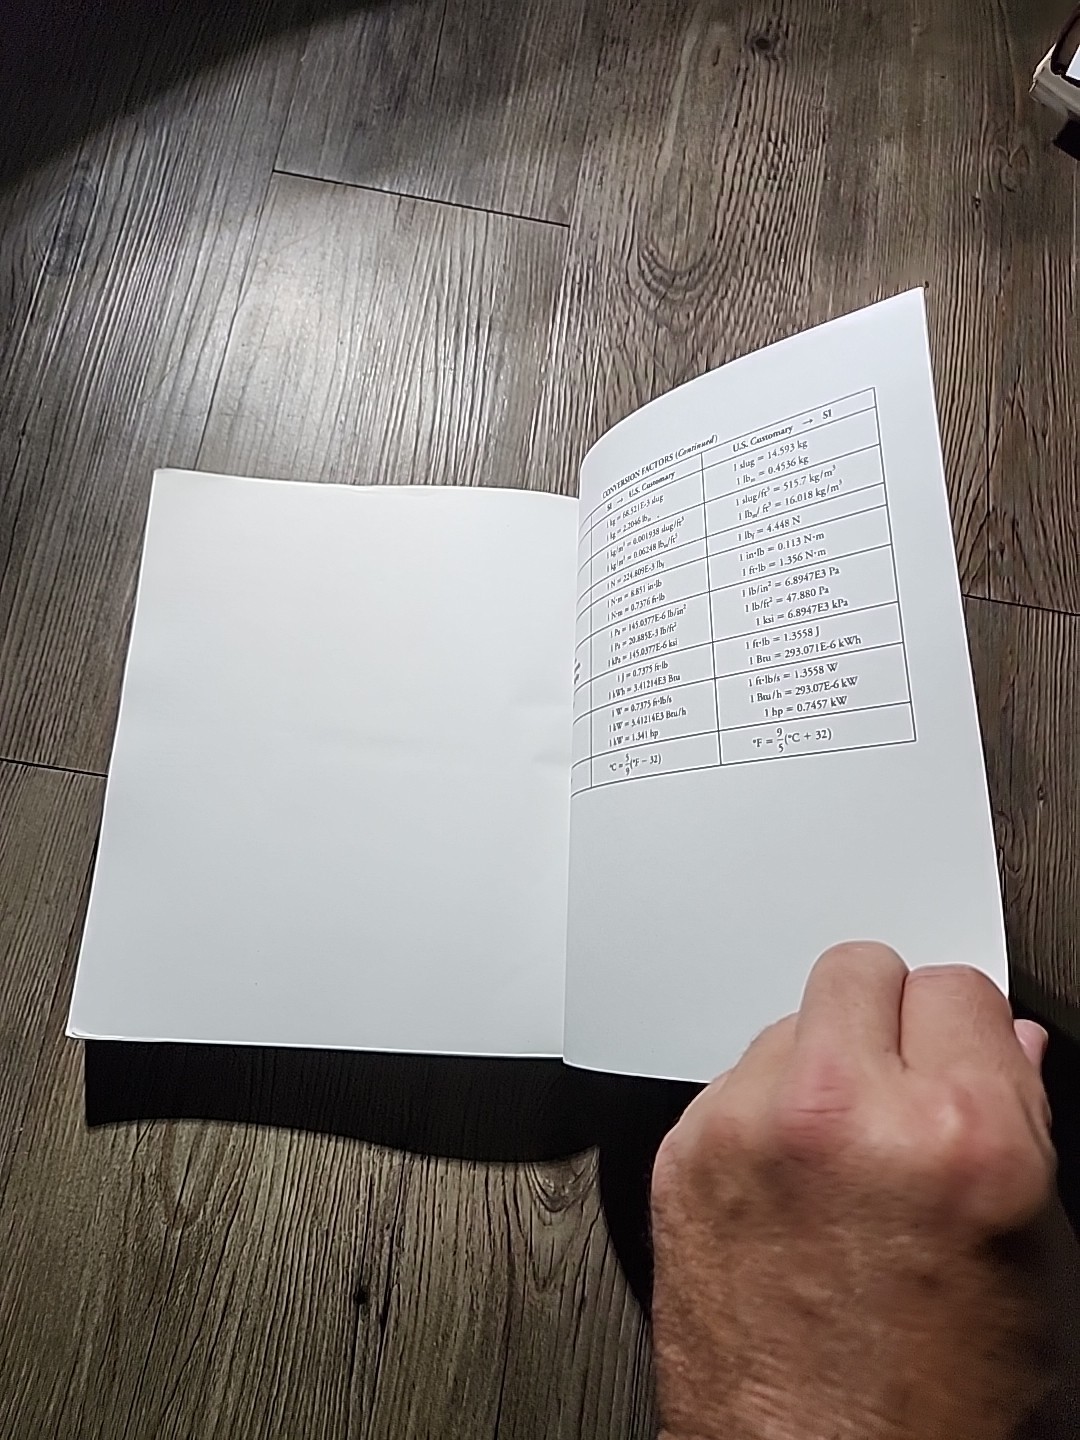 CONVERSION FACTORS (Continued)
SI → U.S. Customary
U.S. Customary → SI
1 kg = 68.521E-3 slug
1 kg = 2.2046 lbₘ
1 slug = 14.593 kg
1 lbₘ = 0.4536 kg
1 kg/m³ = 0.001938 slug/ft³
1 kg/m³ = 0.06248 lbₘ/ft³
1 slug/ft³ = 515.7 kg/m³
1 lbₘ/ ft³ = 16.018 kg/m³
1 N = 224.809E-3 lb_f
1 lb_f = 4.448 N
1 N·m = 8.851 in·lb
1 N·m = 0.7376 ft·lb
1 in·lb = 0.113 N·m
1 ft·lb = 1.356 N·m
1 Pa = 145.0377E-6 lb/in²
1 Pa = 20.885E-3 lb/ft²
1 kPa = 145.0377E-6 ksi
1 lb/in² = 6.8947E3 Pa
1 lb/ft² = 47.880 Pa
1 ksi = 6.8947E3 kPa
1 J = 0.7375 ft·lb
1 kWh = 3.41214E3 Btu
1 ft·lb = 1.3558 J
1 Btu = 293.071E-6 kWh
1 W = 0.7375 ft·lb/s
1 kW = 3.41214E3 Btu/h
1 kW = 1.341 hp
1 ft·lb/s = 1.3558 W
1 Btu/h = 293.07E-6 kW
1 hp = 0.7457 kW
°C = 5/9(°F − 32)
°F = 9/5(°C + 32)